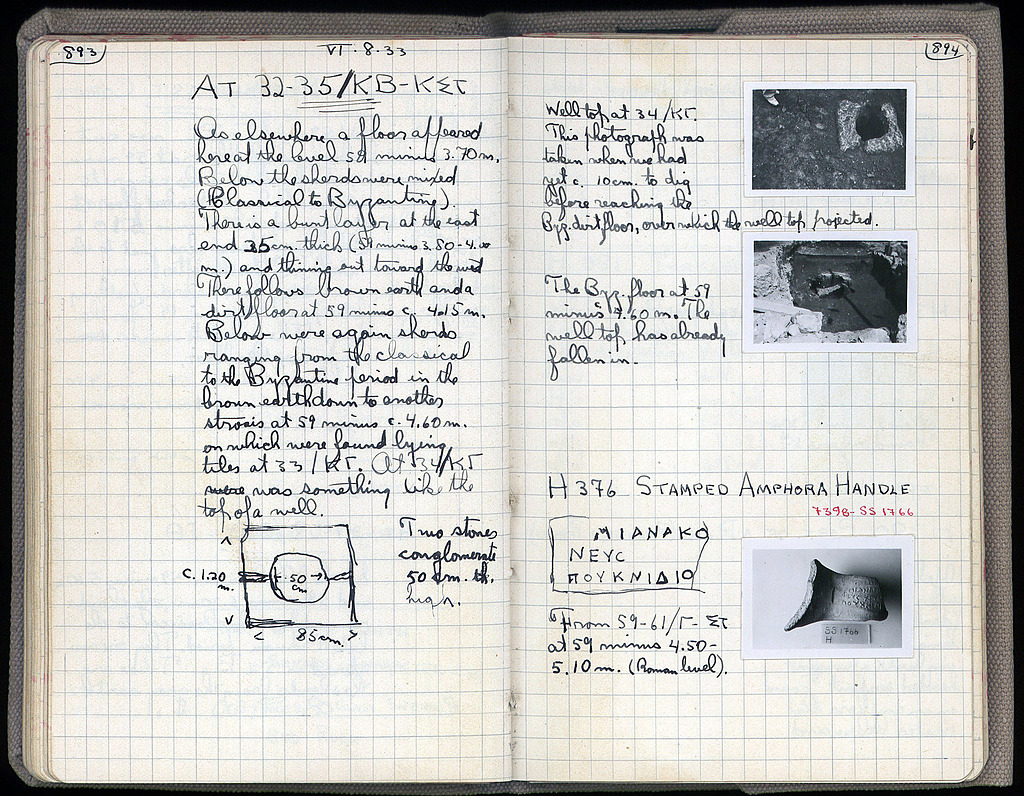 893
VI·8·33
AT 32-35/ΚΒ-ΚΣΤ
As elsewhere a floor appeared
here at the level 59 minus 3.70 m.
Below the sherds were mixed
(Classical to Byzantine).
There is a burnt layer at the east
end 35 cm. thick (59 minus 3.80-4.00
m.) and thinning out toward the west
There follows brown earth and a
dirt floor at 59 minus c. 4.15 m.
Below were again sherds
ranging from the classical
to the Byzantine period in the
brown earth down to another
strosis at 59 minus c. 4.60 m.
on which were found lying
tiles at 33/ΚΓ. At 34/ΚΓ
were was something like the
top of a well.
Two stones
conglomerate
50 cm. th.
high.
c. 1.20
m.
50
cm
85 cm.
894
Well top at 34/ΚΓ.
This photograph was
taken when we had
yet c. 10 cm. to dig
before reaching the
Byz. dirt floor, over which the well top projected.
The Byz. floor at 59
minus 4.60 m. The
well top has already
fallen in.
H 376 STAMPED AMPHORA HANDLE
7398-SS 1766
ΜΙΑΝΑΚΟ
ΝΕΥC
ΠΟΥΚΝΙΔΙΟ
From 59-61/Γ-ΣΤ
at 59 minus 4.50-
5.10 m. (Roman level).
SS 1766
H